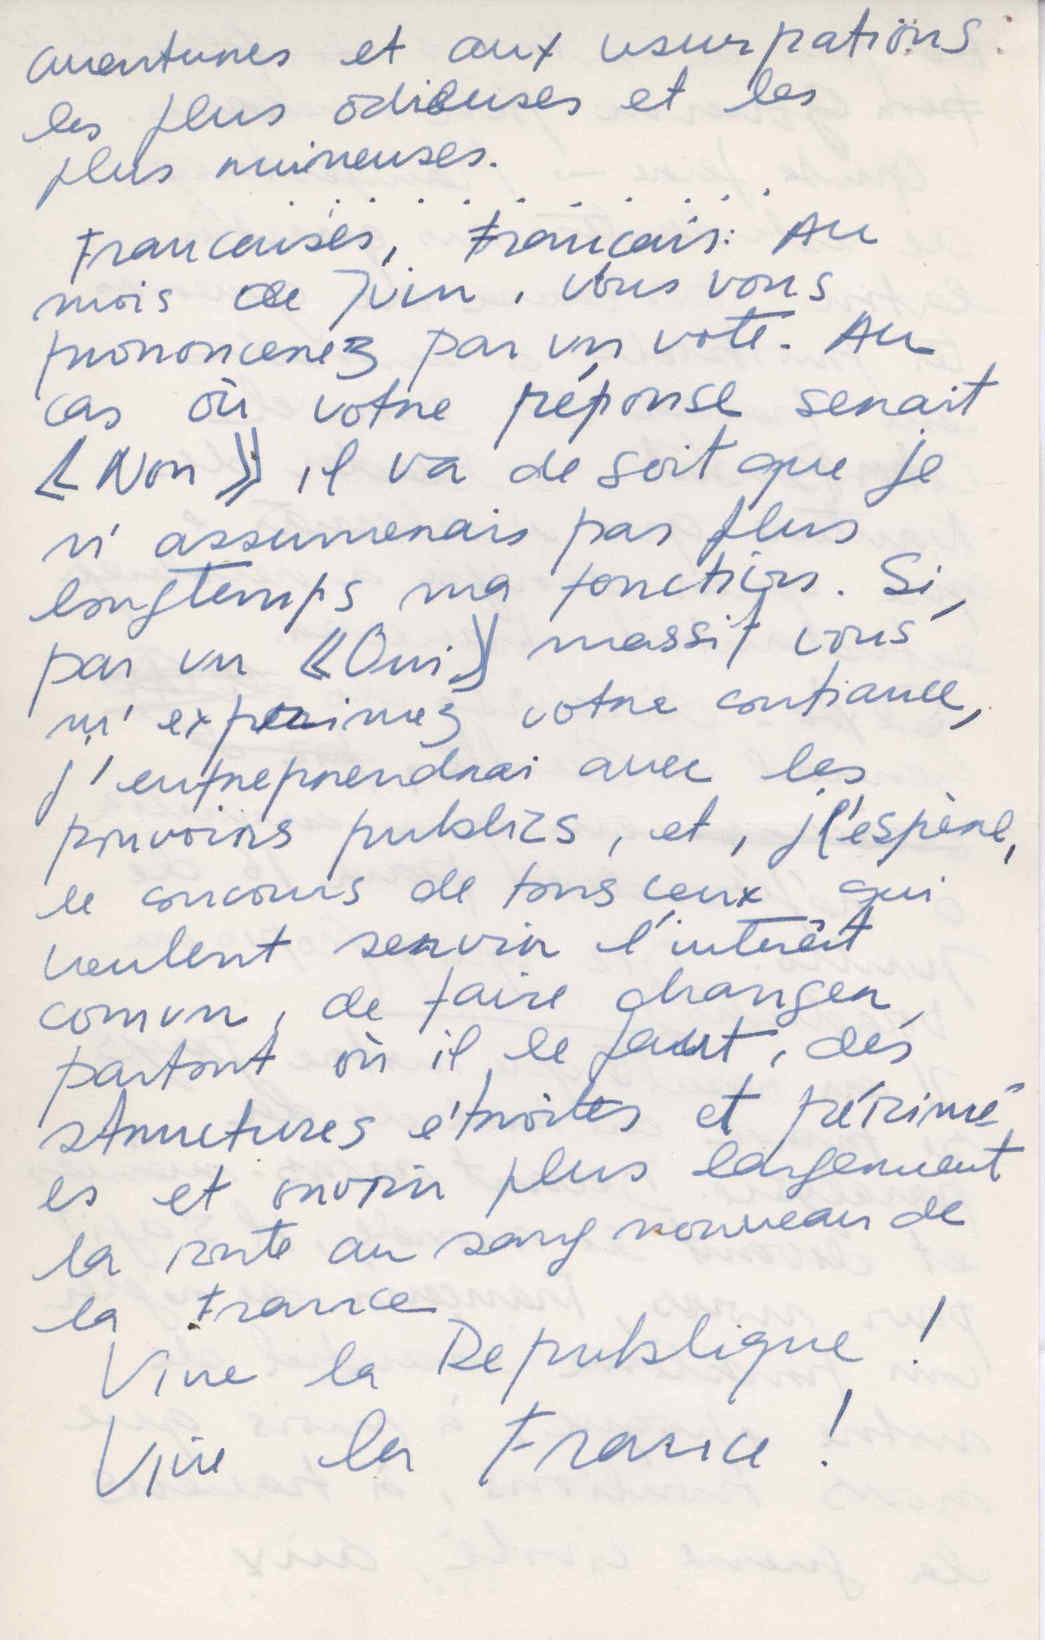 aventures et aux usurpations
les plus odieuses et les
plus ruineuses.
. . . . . . . . . . . .
Francaises, Francais: Au
mois de Juin, vous vous
prononcerez par un vote. Au
cas où votre réponse serait
« Non », il va de soit que je
n'assumerais pas plus
longtemps ma fonction. Si,
par un « Oui » massif vous
m'exprimez votre confiance,
j'entreprendrai avec les
pouvoirs publics, et, j'espère,
le concours de tous ceux qui
veulent servir l'interêt
comun, de faire changer
partout où il le faut, des
structures étroites et périmé
es et ouvrir plus largement
la route au sang nouveau de
la France
Vive la Republique !
Vive la France !